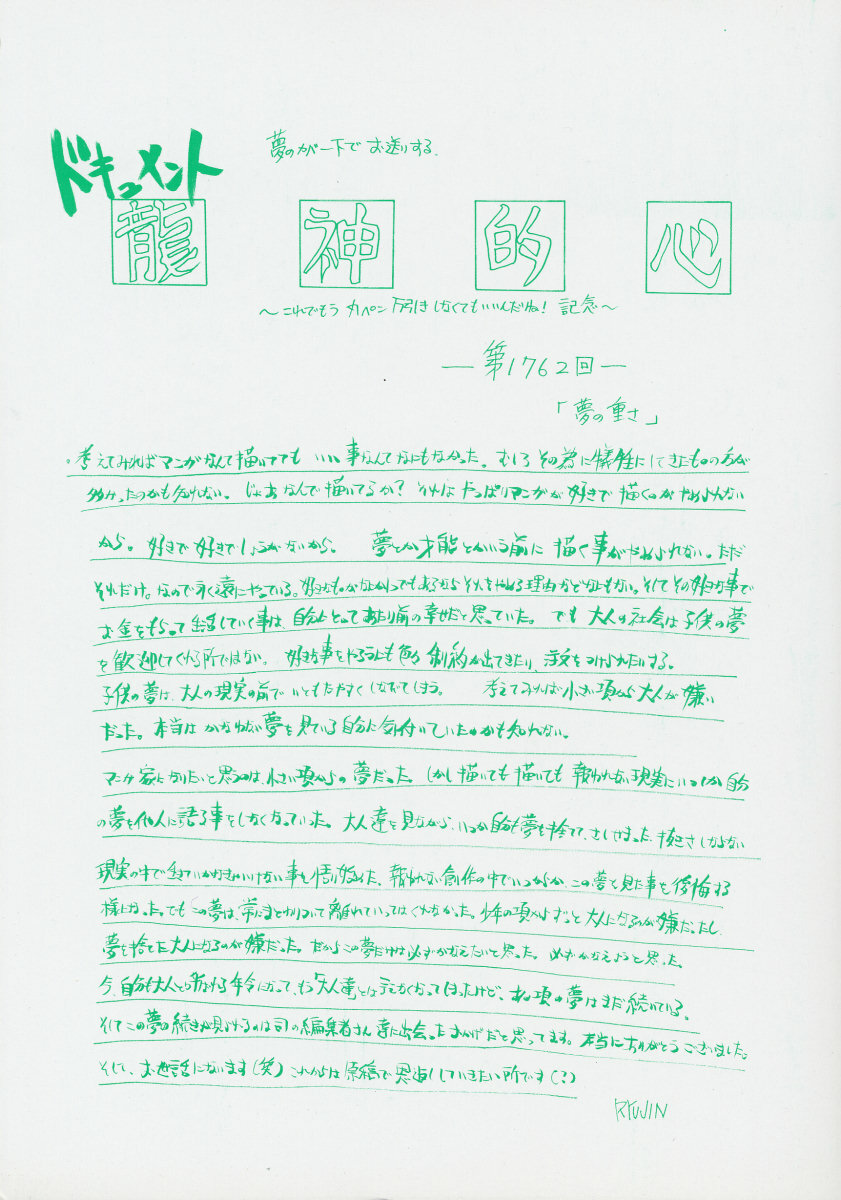 ドキュメント
夢のカバー下でお送りする
龍神的心
～これでもう カペン 万引きしなくてもいいんだね！ 記念～
―第1762回―
「夢の重さ」
。考えてみればマンガなんて描いてても いい事なんてなにもなかった。むしろ その為に犠牲にしてきたものの方が
多かったのかも知れない。じゃあなんで描いてるか？ それはやっぱりマンガが好きで描くのがやめられない
から。好きで好きでしょうがないから。 夢とか才能とかいう前に 描く事がやめられない。ただ
それだけ。なので永遠にやっている。好きなものがなかったらそれをやめる理由などなにもない。そしてその好きな事で
お金をもらって生活していく事は、自分にとってあたり前の幸せだと思っていた。でも 大人の社会は子供の夢
を歓迎してくれる所ではない。好きな事をやるにも色々制約が出てきたり、注文をつけられたりする。
子供の夢は、大人の現実の前でいともたやすくしなびてしまう。 考えてみれば小さい頃から大人が嫌い
だった。本当は かなわない夢を見ている自分に気付いていたのかも知れない。
マンガ家になりたいと思うのは、小さい頃からの夢だった。しかし描いても描いても報われない現実にいつしか自分
の夢を他人に語る事をしなくなっていった。大人達を見ながら、いつか自分も夢を捨て、
現実の中で生きていかなきゃいけない事を悟り始めた。報われない創作の中でいつからか、この夢を見た事を後悔する
様になった。でもこの夢は、常にまとわりついて離れていってはくれなかった。少年の頃からずっと大人になるのが嫌だったし、
夢を捨てた大人になるのが嫌だった。だからこの夢だけは必ずかなえたいと思った。必ずかなえようと思った。
今、自分も大人と呼ばれる年令になって、もう「大人達」とは言えなくなってしまったけど、あの頃の夢はまだ続いている。
そしてこの夢の続きが見られるのは司の編集者さん達に出会ったおかげだと思ってます。本当にありがとうございました。
そして、お世話になります(笑) これからは原稿で恩返ししていきたい所です(？)
RYUJIN